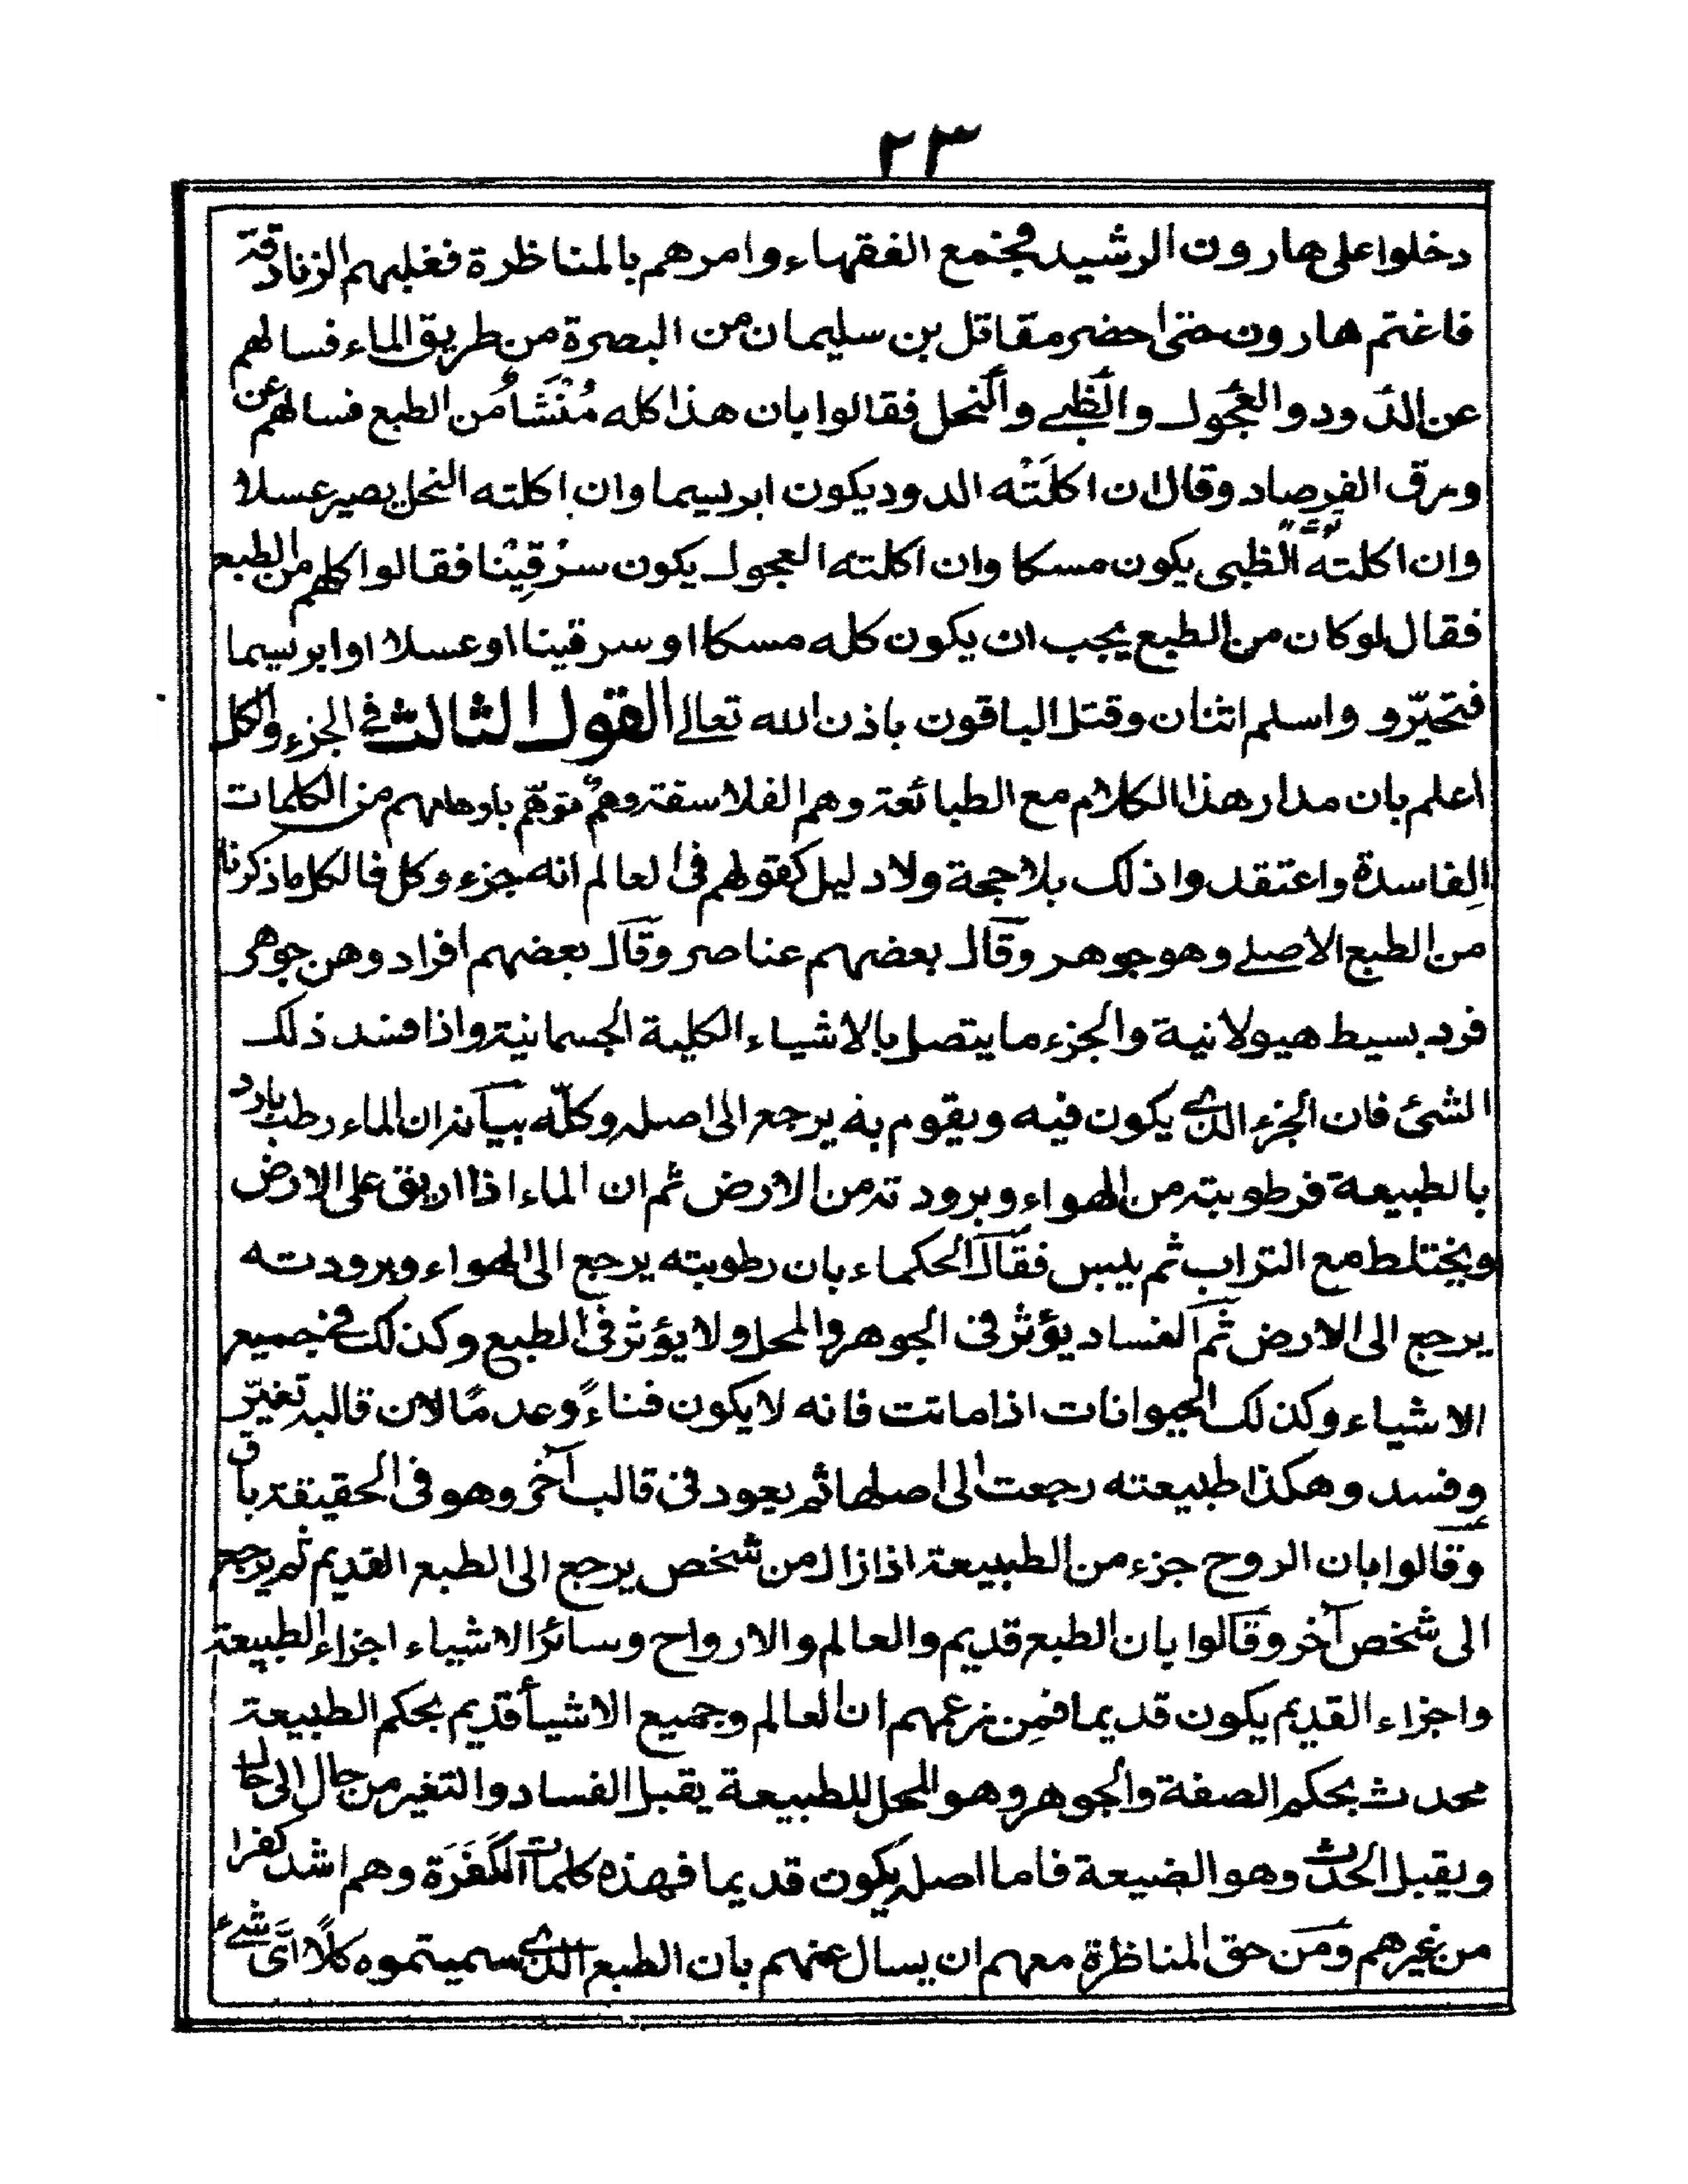 ٢٣
دخلوا على هارون الرشيد فجمع الفقهاء وامرهم بالمناظرة فغلبهم الزنادقة
فاغتم هارون حتى احضر مقاتل بن سليمان من البصرة من طريق الماء فسالهم
عن الدود والعجول والظبى والنحل فقالوا بان هذا كله مُنْشَأٌ من الطبع فسالهم عن
ورق الفرصاد وقال ان اكلَتْه الدود يكون ابريسما وان اكلته النحل يصير عسلا
توت
وان اكلته الظبى يكون مسكا وان اكلته العجول يكون سرْقِيْنا فقالوا كلهم من الطبع
فقال لو كان من الطبع يجب ان يكون كله مسكا او سرقينا او عسلا او ابريسما
فتحيّرو واسلم اثنان وقتل الباقون باذن الله تعالى القول الثالث فى الجزء والكل
اعلم بان مدار هذا الكلام مع الطبائعة وهم الفلاسفة وهم توهّم باوهامهم من الكلمات
الفاسدة واعتقدوا ذلك بلا حجة ولا دليل كقولهم فى العالم انه جزء وكل فالكل ما ذكرناه
من الطبع الاصلى وهو جوهر وقال بعضهم عناصر وقال بعضهم افراد وهن جوهر
فرد بسيط هيولانية والجزء ما يتصل بالاشياء الكلية الجسمانية واذا فسد ذلك
الشئ فان الجزء الذى يكون فيه ويقوم به يرجع الى اصله وكلّه بيانه ان الماء رطب بارد
بالطبيعة فرطوبته من الهواء وبرودته من الارض ثم ان الماء اذا اريق على الارض
ويختلط مع التراب ثم ييبس فقال الحكماء بان رطوبته يرجع الى الهواء وبرودته
يرجع الى الارض ثم الفساد يؤثر فى الجوهر والمحل ولا يؤثر فى الطبع وكذلك فى جميع
الاشياء وكذلك الحيوانات اذا ماتت فانه لا يكون فناءً وعدمًا لان قالبه تغيّر
وفسد وهكذا طبيعته رجعت الى اصلها ثم يعود فى قالب آخر وهو فى الحقيقة باق
وقالوا بان الروح جزء من الطبيعة اذا زال من شخص يرجع الى الطبع القديم ثم يرجع
الى شخص آخر وقالوا بان الطبع قديم والعالم والارواح وسائر الاشياء اجزاء الطبيعة
واجزاء القديم يكون قديما فمِن زعمهم ان العالم وجميع الاشيأ قديم بحكم الطبيعة
محدث بحكم الصفة والجوهر وهو المحل للطبيعة يقبل الفساد والتغير من حال الى حال
ويقبل الحدث وهو الضيعة فاما اصله يكون قديما فهذه كلمات الكَفَرَة وهم اشد كفرا
من غيرهم ومن حق المناظرة معهم ان يسال عنهم بان الطبع الذى سميتموه كلًا اىّ شئ